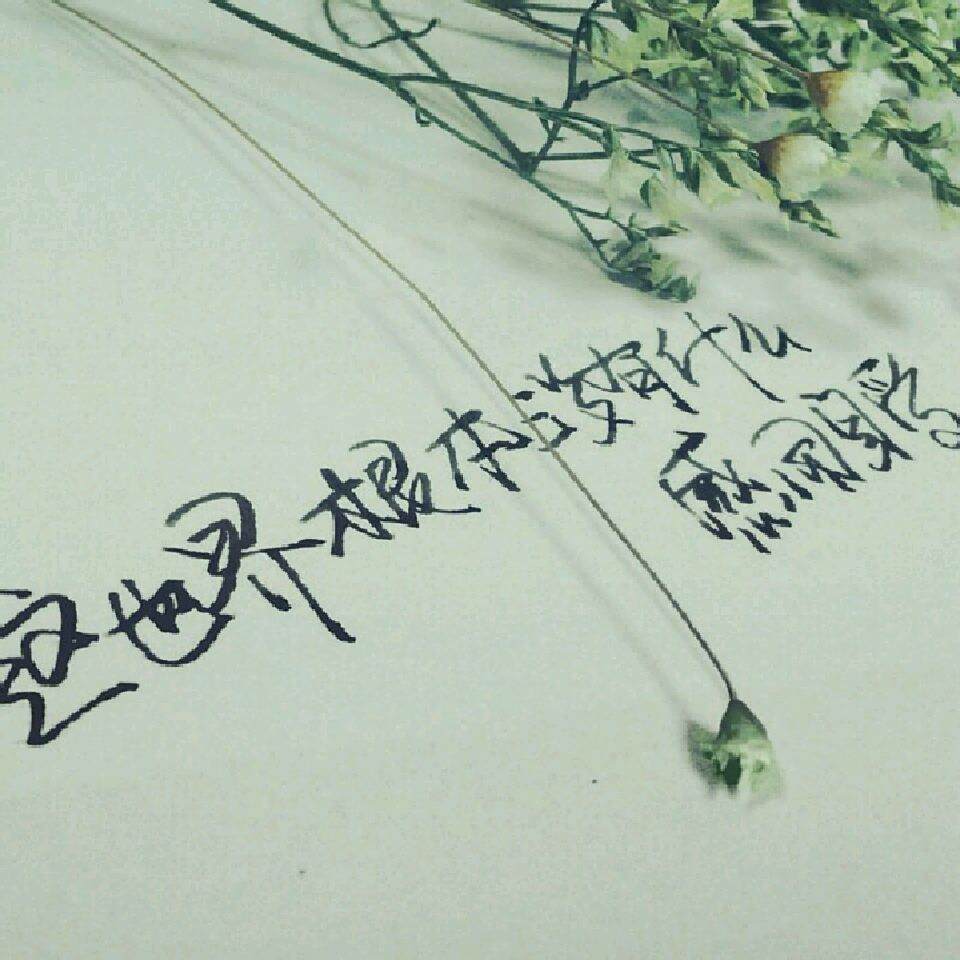 这世界根本没有什么
感同身受